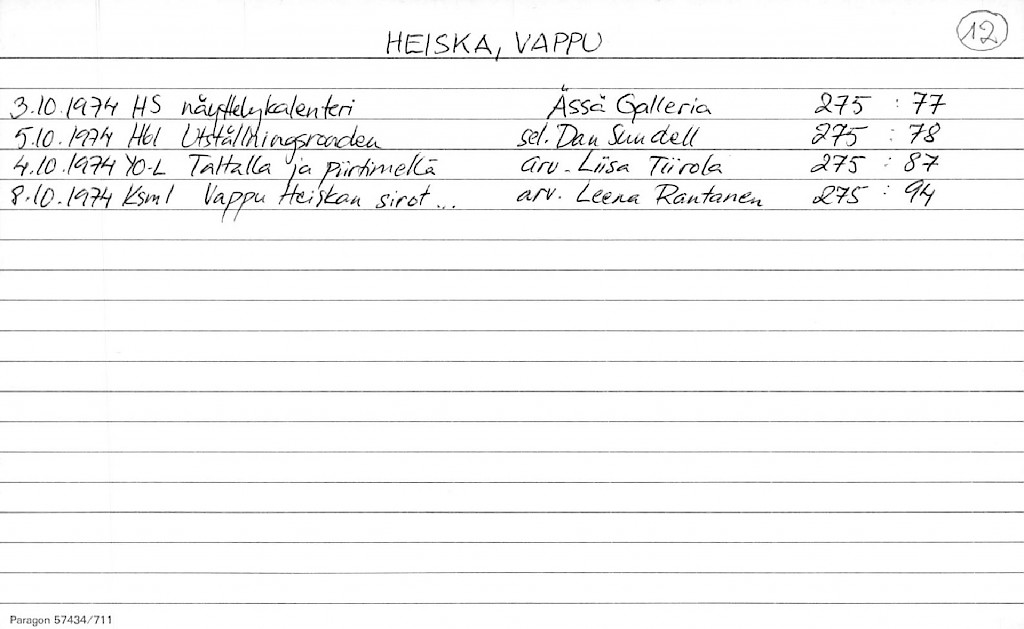 HEISKA, VAPPU
12
3.10.1974 HS näyttelykalenteri Ässä Galleria 275 : 77
5.10.1974 Hbl Utställningsronden sel. Dan Sundell 275 : 78
4.10.1974 YO-L Taltalla ja piirtimellä arv. Liisa Tiirola 275 : 87
8.10.1974 Ksml Vappu Heiskan sirot... arv. Leena Rantanen 275 : 94
Paragon 57434/711